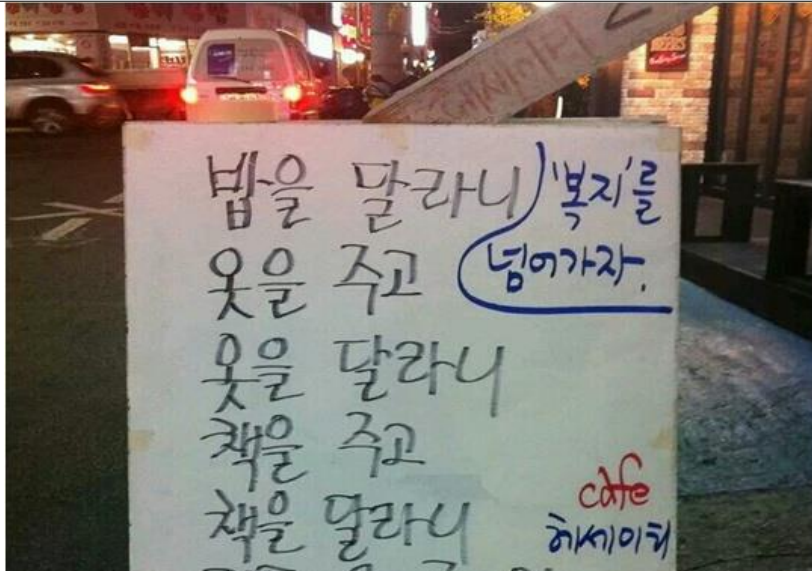 밥을 달라니
옷을 주고
옷을 달라니
책을 주고
책을 달라니
'복지'를
넘어가자.
cafe
헤세이티